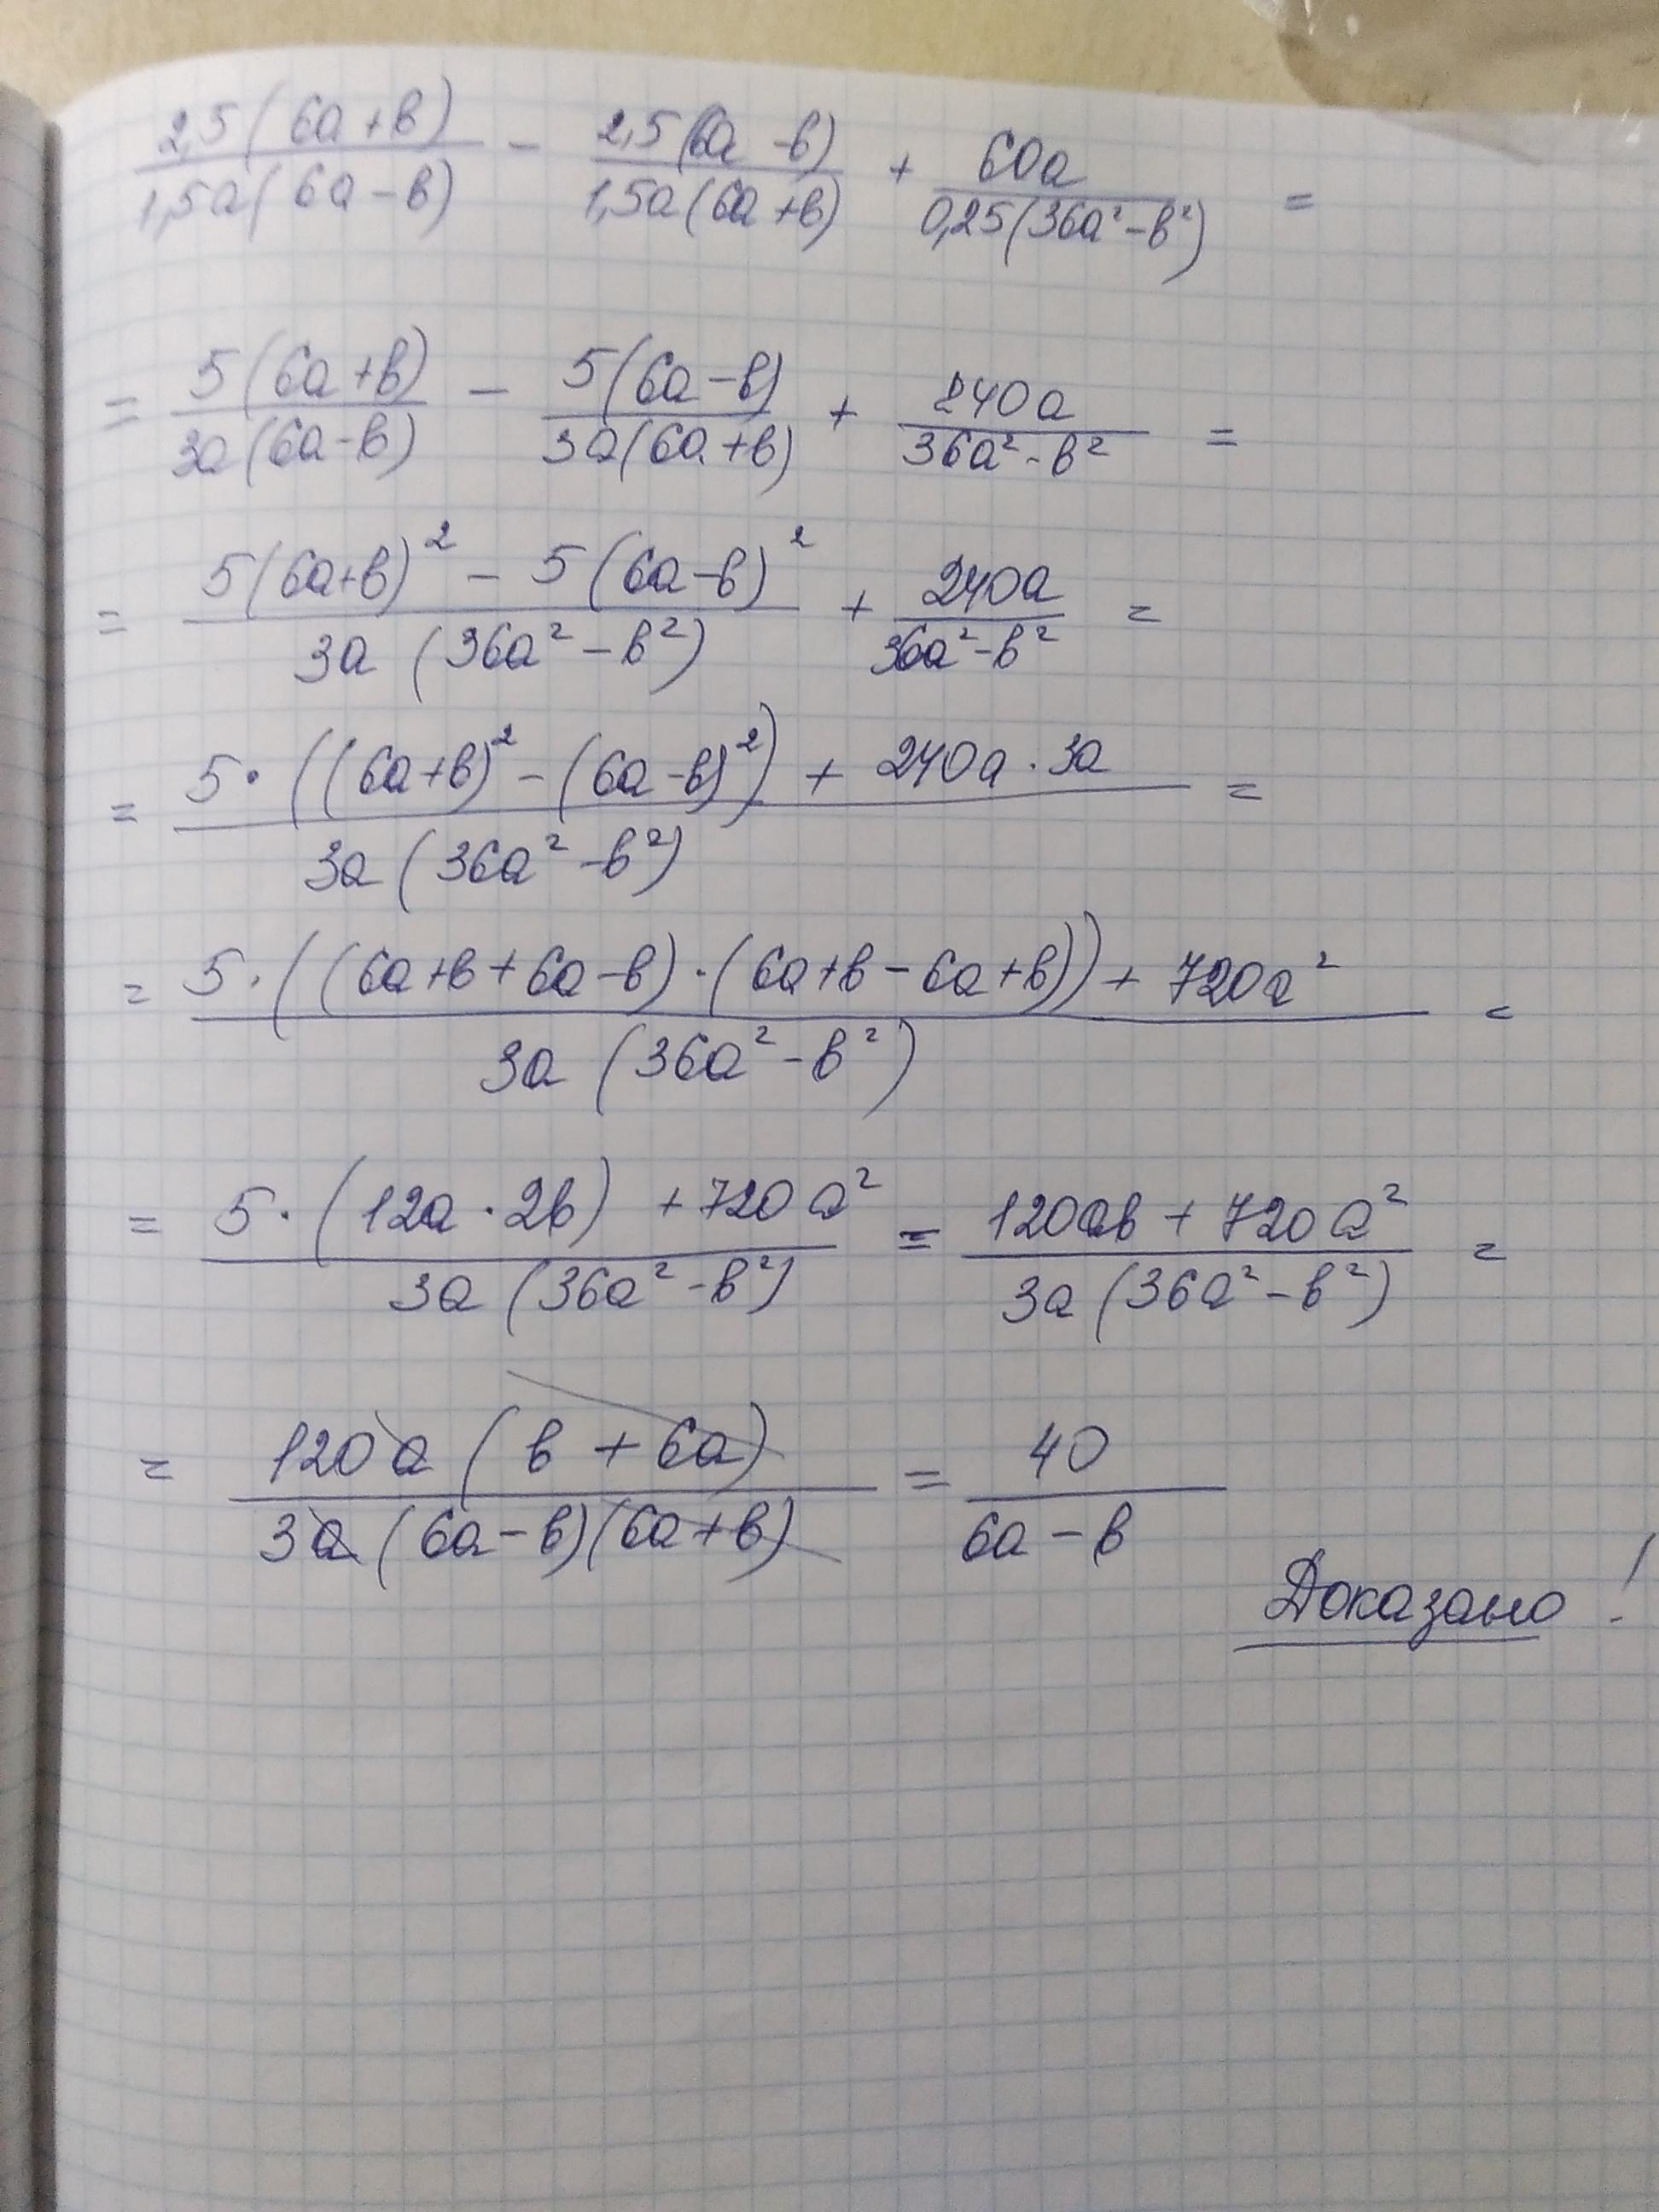 2,5(6a+b)/1,5a(6a-b) - 2,5(6a-b)/1,5a(6a+b) + 60a/0,25(36a²-b²) =
= 5(6a+b)/3a(6a-b) - 5(6a-b)/3a(6a+b) + 240a/36a²-b² =
= 5(6a+b)² - 5(6a-b)²/3a(36a²-b²) + 240a/36a²-b² =
= 5·((6a+b)²-(6a-b)²) + 240a·3a/3a(36a²-b²) =
= 5·((6a+b+6a-b)·(6a+b-6a+b)) + 720a²/3a(36a²-b²) =
= 5·(12a·2b) + 720a²/3a(36a²-b²) = 120ab + 720a²/3a(36a²-b²) =
= 120a(b+6a)/3a(6a-b)(6a+b) = 40/6a-b
Доказано!